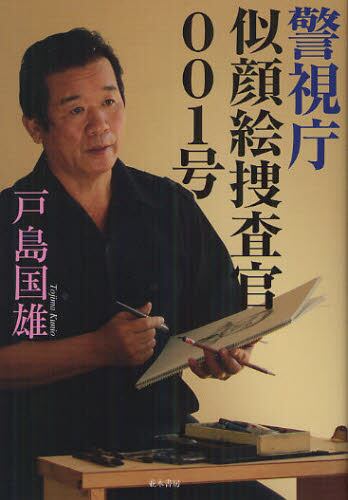 警視庁
似顔絵捜査官
001号
戸島国雄
Tojima Kunio
並木書房